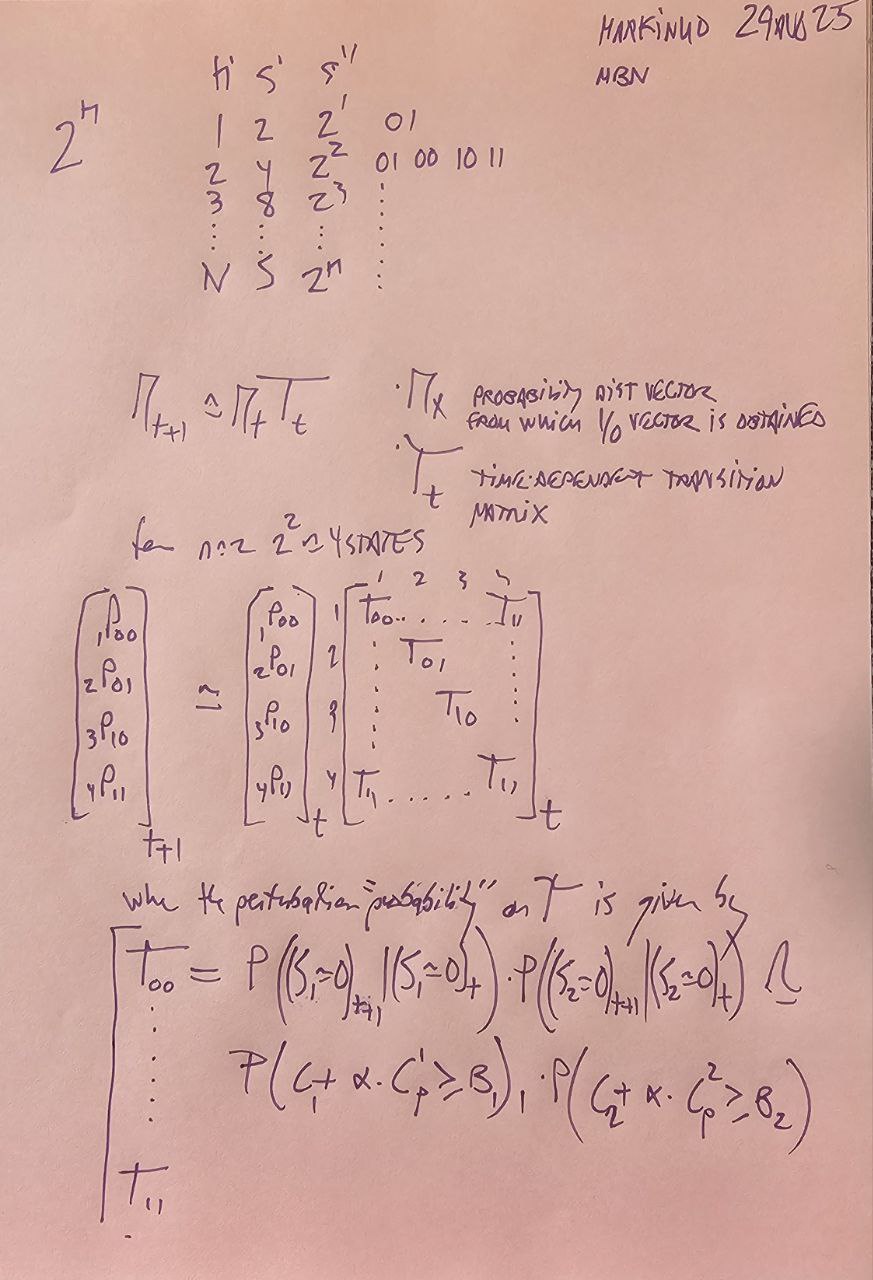 29 AUG 25
MBN
2ⁿ
n' S' S''
1 2 2¹ 01
2 4 2² 01 00 10 11
3 8 2³ ⋮
⋮ ⋮ ⋮
N S 2ⁿ ⋮
Π_{t+1} ≃ Π_t T_t
· Π_x PROBABILITY DIST VECTOR
FROM WHICH 1/0 VECTOR IS OBTAINED
· T_t TIME-DEPENDENT TRANSITION
MATRIX
for n=2 2² = 4 STATES
1 2 3 4
₁P₀₀ ₁P₀₀ 1 T₀₀ ..... T₁₁
₂P₀₁ ≃ ₂P₀₁ 2 T₀₁
₃P₁₀ ₃P₁₀ 3 T₁₀
₄P₁₁ ₄P₁₁ 4 T₁₁ ..... T₁₁
t+1 t t
the perturbation "probability" on T is given by
T₀₀ = P((S₁≃0)_{t+1}|(S₁≃0)_t) · P((S₂≃0)_{t+1}|(S₂≃0)_t)
P(C₁ + α · C_p¹ ≥ B₁)₁ · P(C₂ + α · C_p² ≥ B₂)
T₁₁